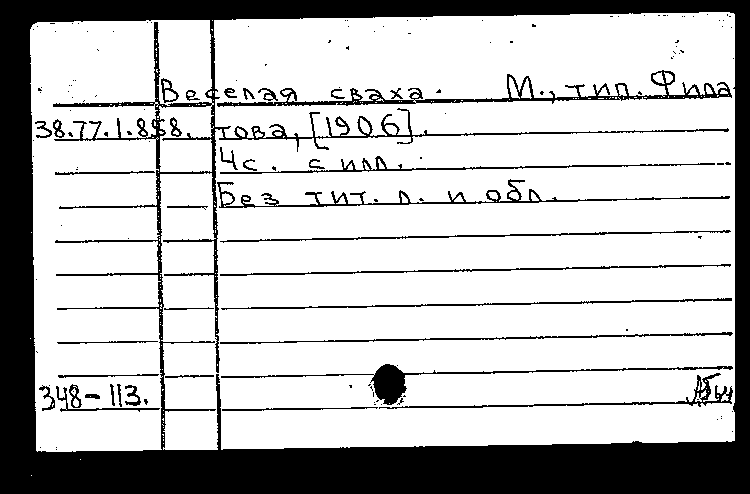 Веселая сваха. М., тип. Фила
38.77.1.858. това, [1906].
4с. с илл.
Без тит. л. и обл.
348-113.